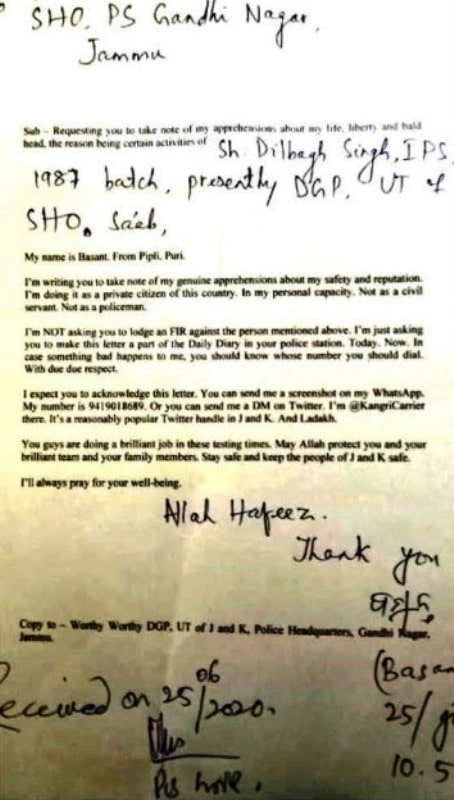 SHO, PS Gandhi Nagar,
Jammu
Sub - Requesting you to take note of my apprehensions about my life, liberty and bald
head, the reason being certain activities of Sh. Dilbagh Singh, IPS,
1987 batch, presently DGP, UT of
SHO. Sa'eb,
My name is Basant. From Pipli, Puri.
I'm writing you to take note of my genuine apprehensions about my safety and reputation.
I'm doing it as a private citizen of this country. In my personal capacity. Not as a civil
servant. Not as a policeman.
I'm NOT asking you to lodge an FIR against the person mentioned above. I'm just asking
you to make this letter a part of the Daily Diary in your police station. Today. Now. In
case something bad happens to me, you should know whose number you should dial.
With due due respect.
I expect you to acknowledge this letter. You can send me a screenshot on my WhatsApp.
My number is 9419018689. Or you can send me a DM on Twitter. I'm @KangriCarrier
there. It's a reasonably popular Twitter handle in J and K. And Ladakh.
You guys are doing a brilliant job in these testing times. May Allah protect you and your
brilliant team and your family members. Stay safe and keep the people of J and K safe.
I'll always pray for your well-being.
Allah Hafeez.
Thank you
Copy to - Worthy Worthy DGP, UT of J and K, Police Headquarters, Gandhi Nagar,
Jammu.
(Basan
eceived on 25/06/2020.
25/
10.5